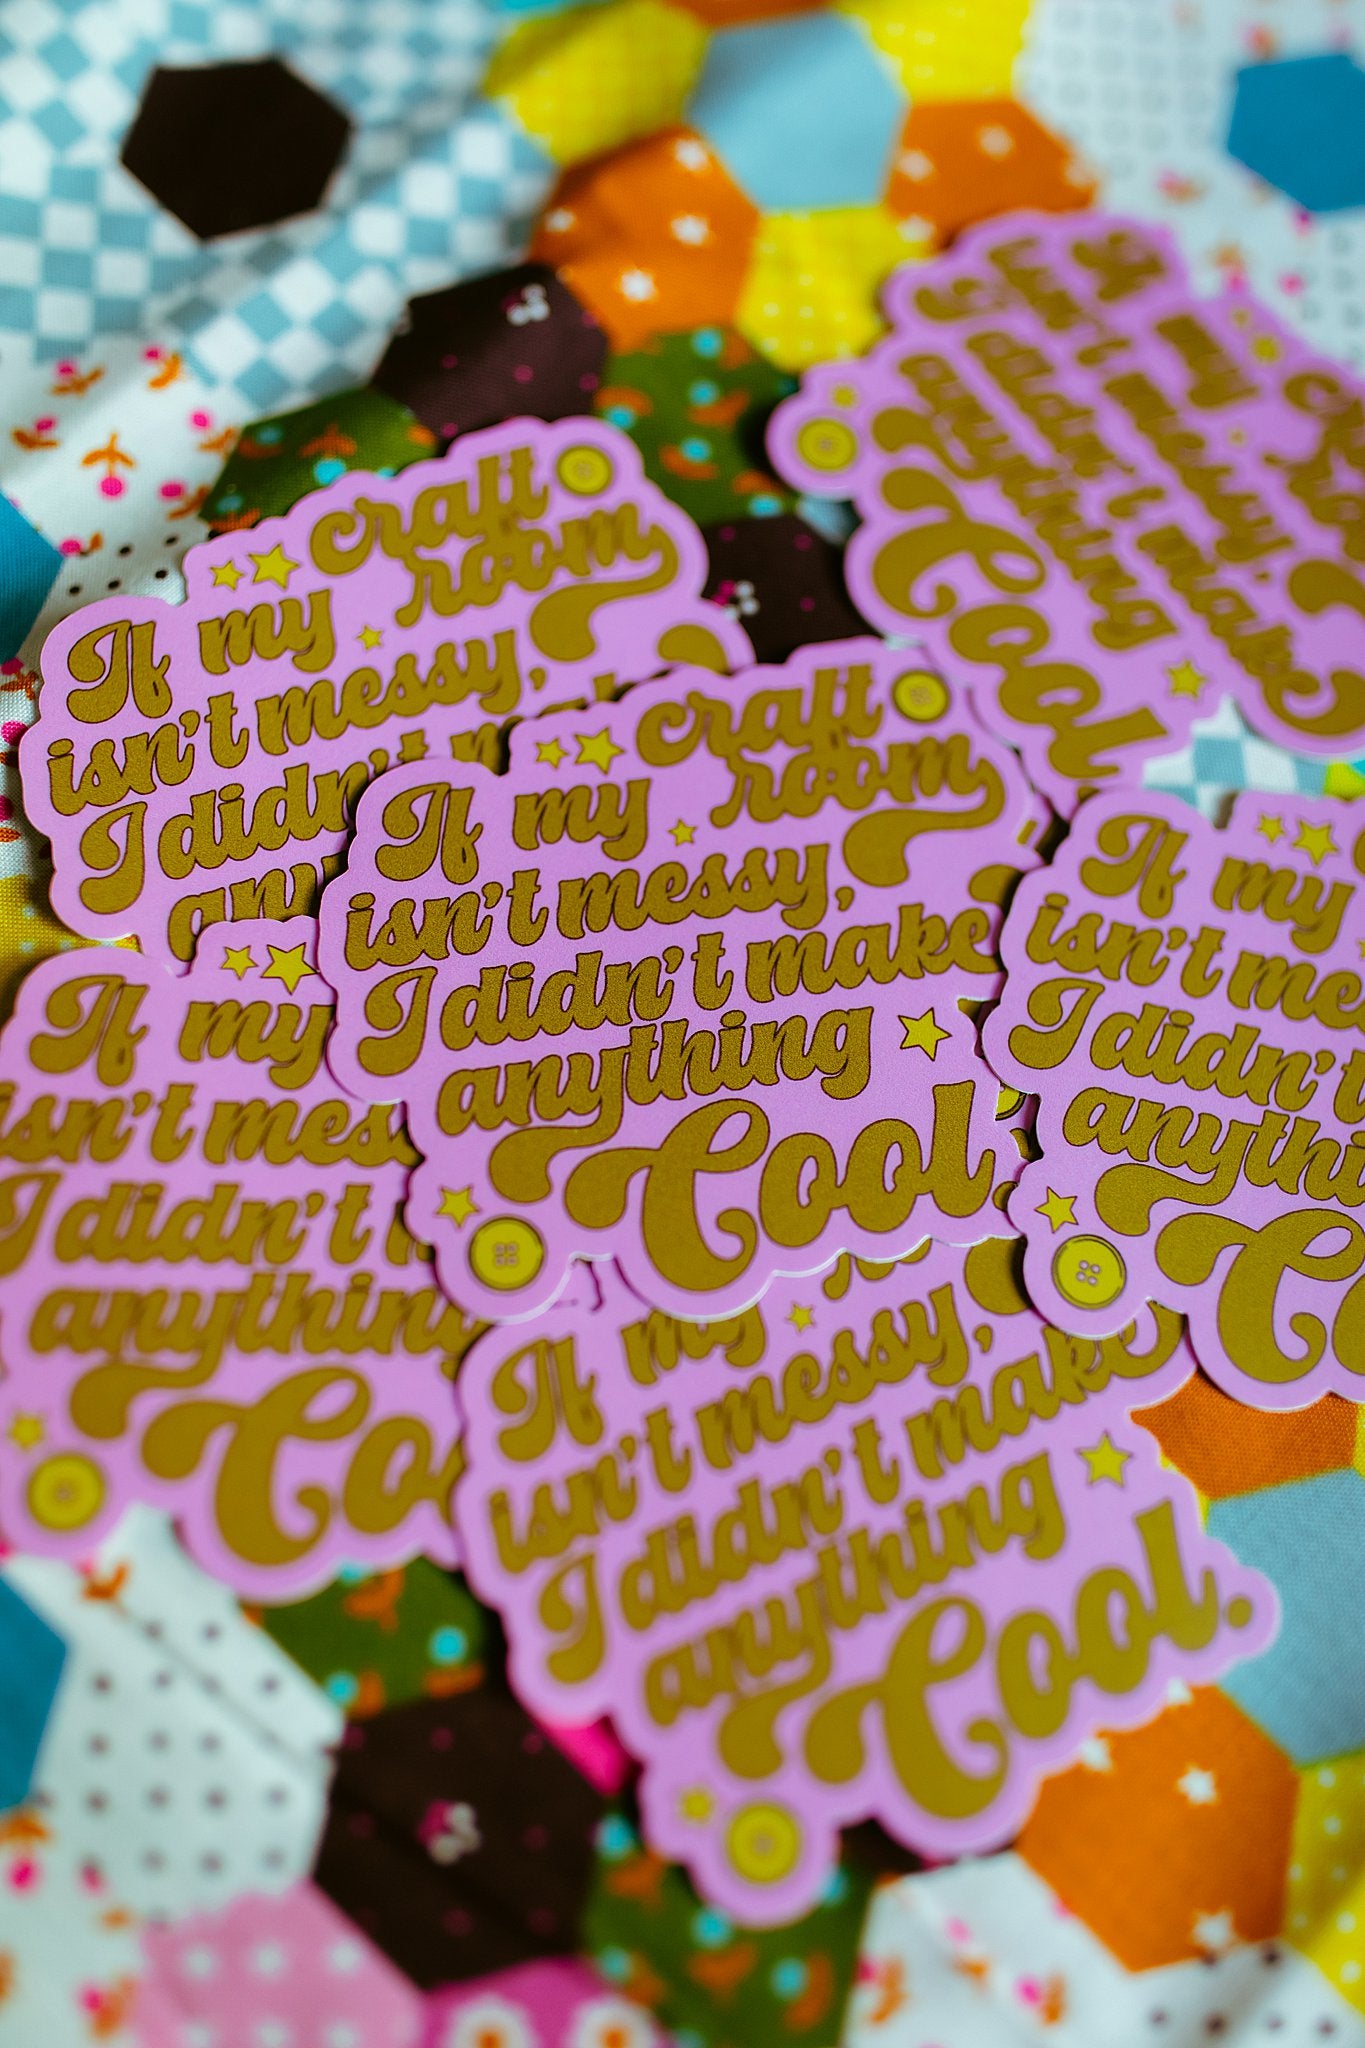 If my
isn't messy,
I didn't make
anything
Cool
If my craft room
isn't messy,
I didn't
any
If my craft room
isn't messy,
I didn't make
anything
Cool.
If my
isn't me
I didn't
anythi
Co
If my
isn't mes
I didn't
anything
Co
If my
isn't messy,
I didn't make
anything
Cool.